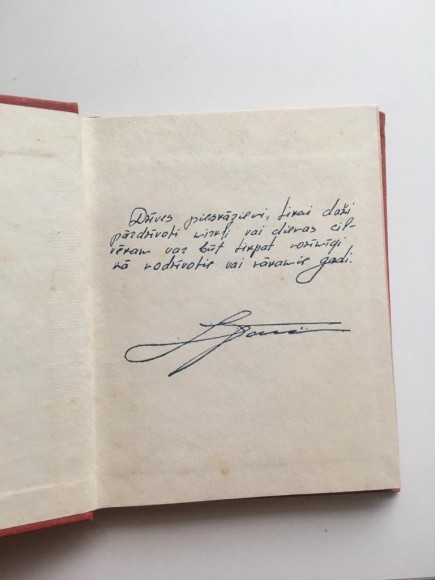 Dzīves pieskāzieni, tikai daži
pārdzīvoti mirkļi vai dienas cil-
vēkam var būt tikpat nozīmīgi
kā nodzīvotie vai nākamie gadi.